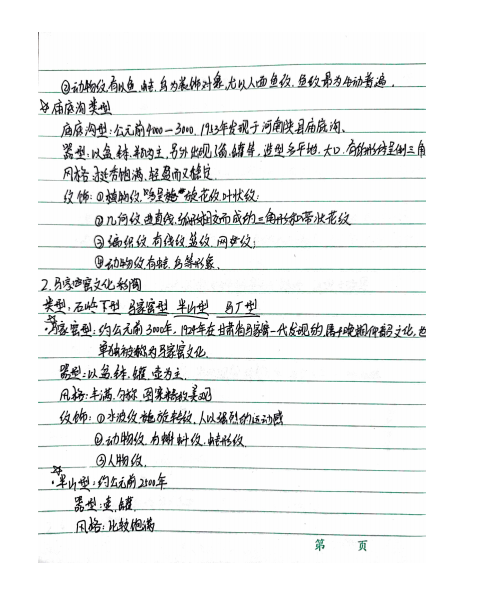 ②动物纹有以鱼、蛙、鸟为装饰对象,尤以人面鱼纹、鱼纹最为生动普遍。
☆庙底沟类型
庙底沟型:公元前4000—3000,1953年发现于河南陕县庙底沟、
器型:以盆、钵、为主,另外出现了甑、罐等,造型多平地、大口、有的形体呈倒三角
风格:挺秀饱满、轻盈而又稳定
纹饰:①植物纹,旋花纹 叶状纹:
②几何纹,曲直线、弧形相交而成的三角形和带状花纹
③编织纹,有线纹 蓝纹、网纹;
④动物纹 有蛙、鸟等形象、
2.马家窑文化彩陶
类型:石岭下型 马家窑型 半山型 马厂型
☆·马家窑型:约公元前3000年,1924年在甘肃省马家窑一代发现的,属于晚期仰韶文化,也
单独被称为马家窑文化
器型:以盆、钵、罐、壶为主
风格:丰满、匀称、图案精致美观
纹饰:①水波纹 旋转纹,人以强烈的运动感
②动物纹 有蝌蚪纹、蛙形纹
③人物纹、
☆·半山型:约公元前2500年
器型:壶、罐
风格:比较饱满
第 页